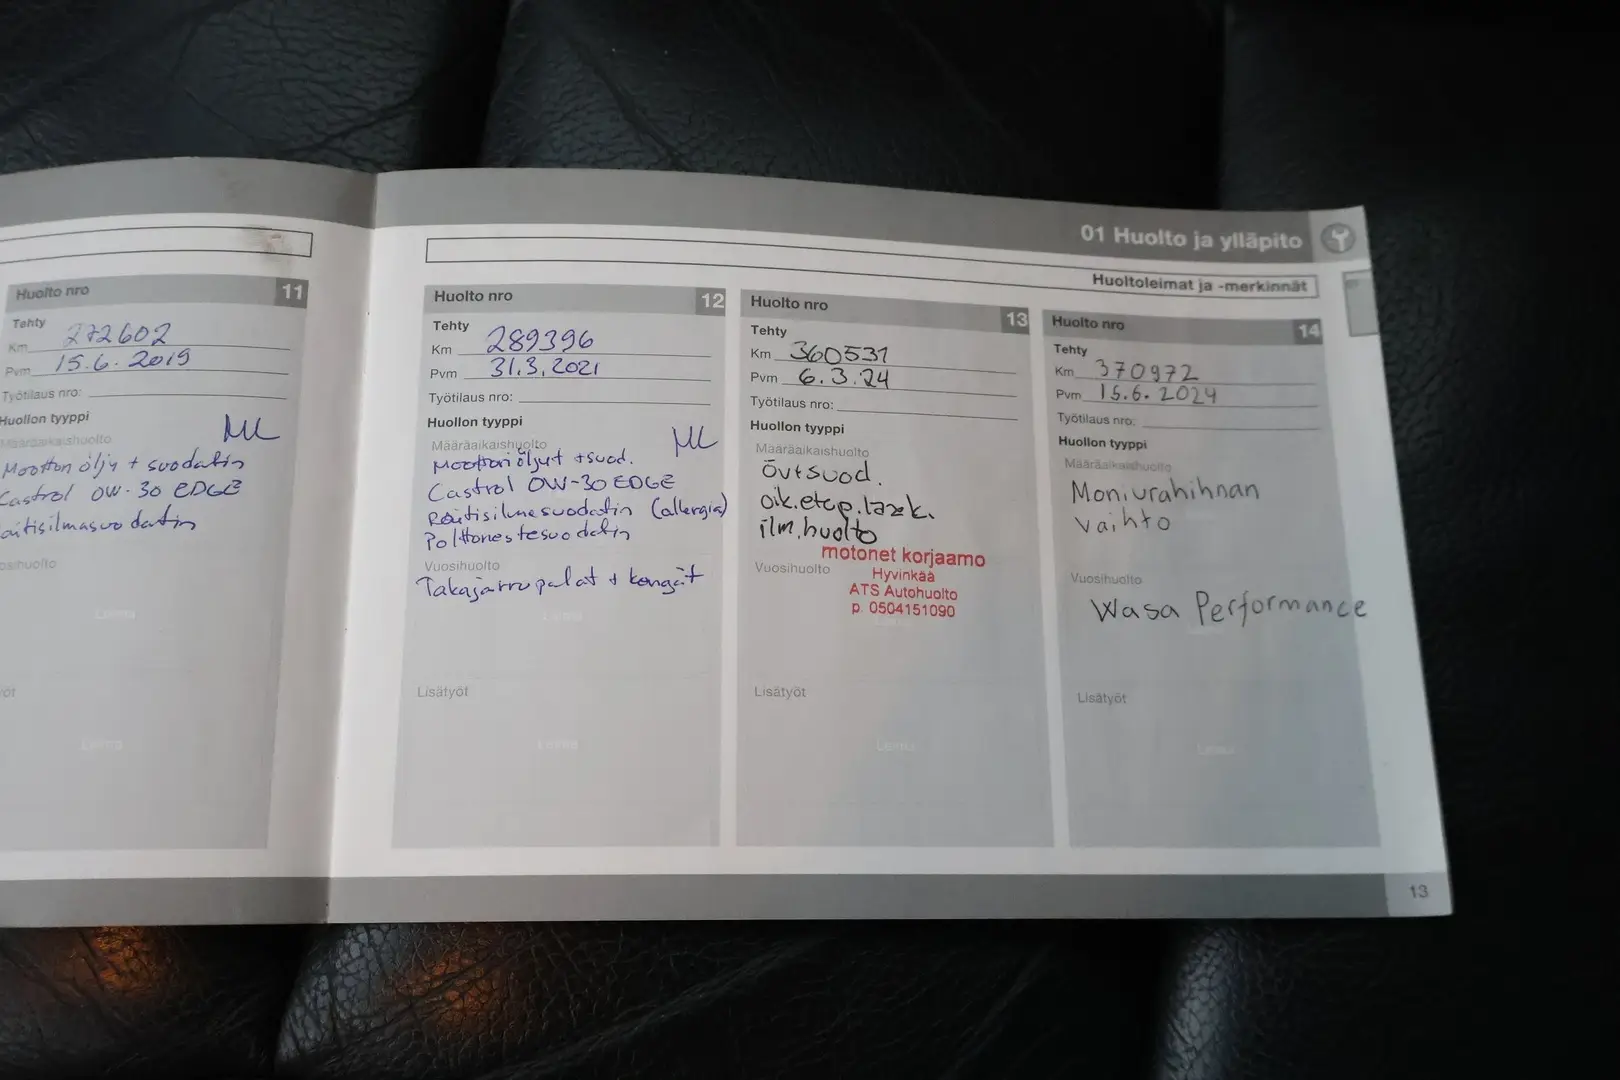 01 Huolto ja ylläpito
Huoltoleimat ja -merkinnät
Huolto nro 11
Tehty
Km 272602
Pvm 15.6.2019
Työtilaus nro:
Huollon tyyppi
Määräaikaishuolto
Moottoriöljy + suodatin
Castrol 0W-30 EDGE
Raitisilmasuodatin
Vuosihuolto
Leima
Leima
Huolto nro 12
Tehty
Km 289396
Pvm 31.3.2021
Työtilaus nro:
Huollon tyyppi
Määräaikaishuolto
Moottoriöljyt + suod.
Castrol 0W-30 EDGE
Raitisilmasuodatin (allergia)
Polttonestesuodatin
Vuosihuolto
Takajarrupalat + kengät
Leima
Lisätyöt
Leima
Huolto nro 13
Tehty
Km 360531
Pvm 6.3.24
Työtilaus nro:
Huollon tyyppi
Määräaikaishuolto
öv+suod.
oik.etup.lask.
ilm.huolto
motonet korjaamo
Vuosihuolto
Hyvinkää
ATS Autohuolto
p. 0504151090
Leima
Lisätyöt
Leima
Huolto nro 14
Tehty
Km 370972
Pvm 15.6.2024
Työtilaus nro:
Huollon tyyppi
Määräaikaishuolto
Moniurahihnan
vaihto
Vuosihuolto
Wasa Performance
Lisätyöt
Leima
13